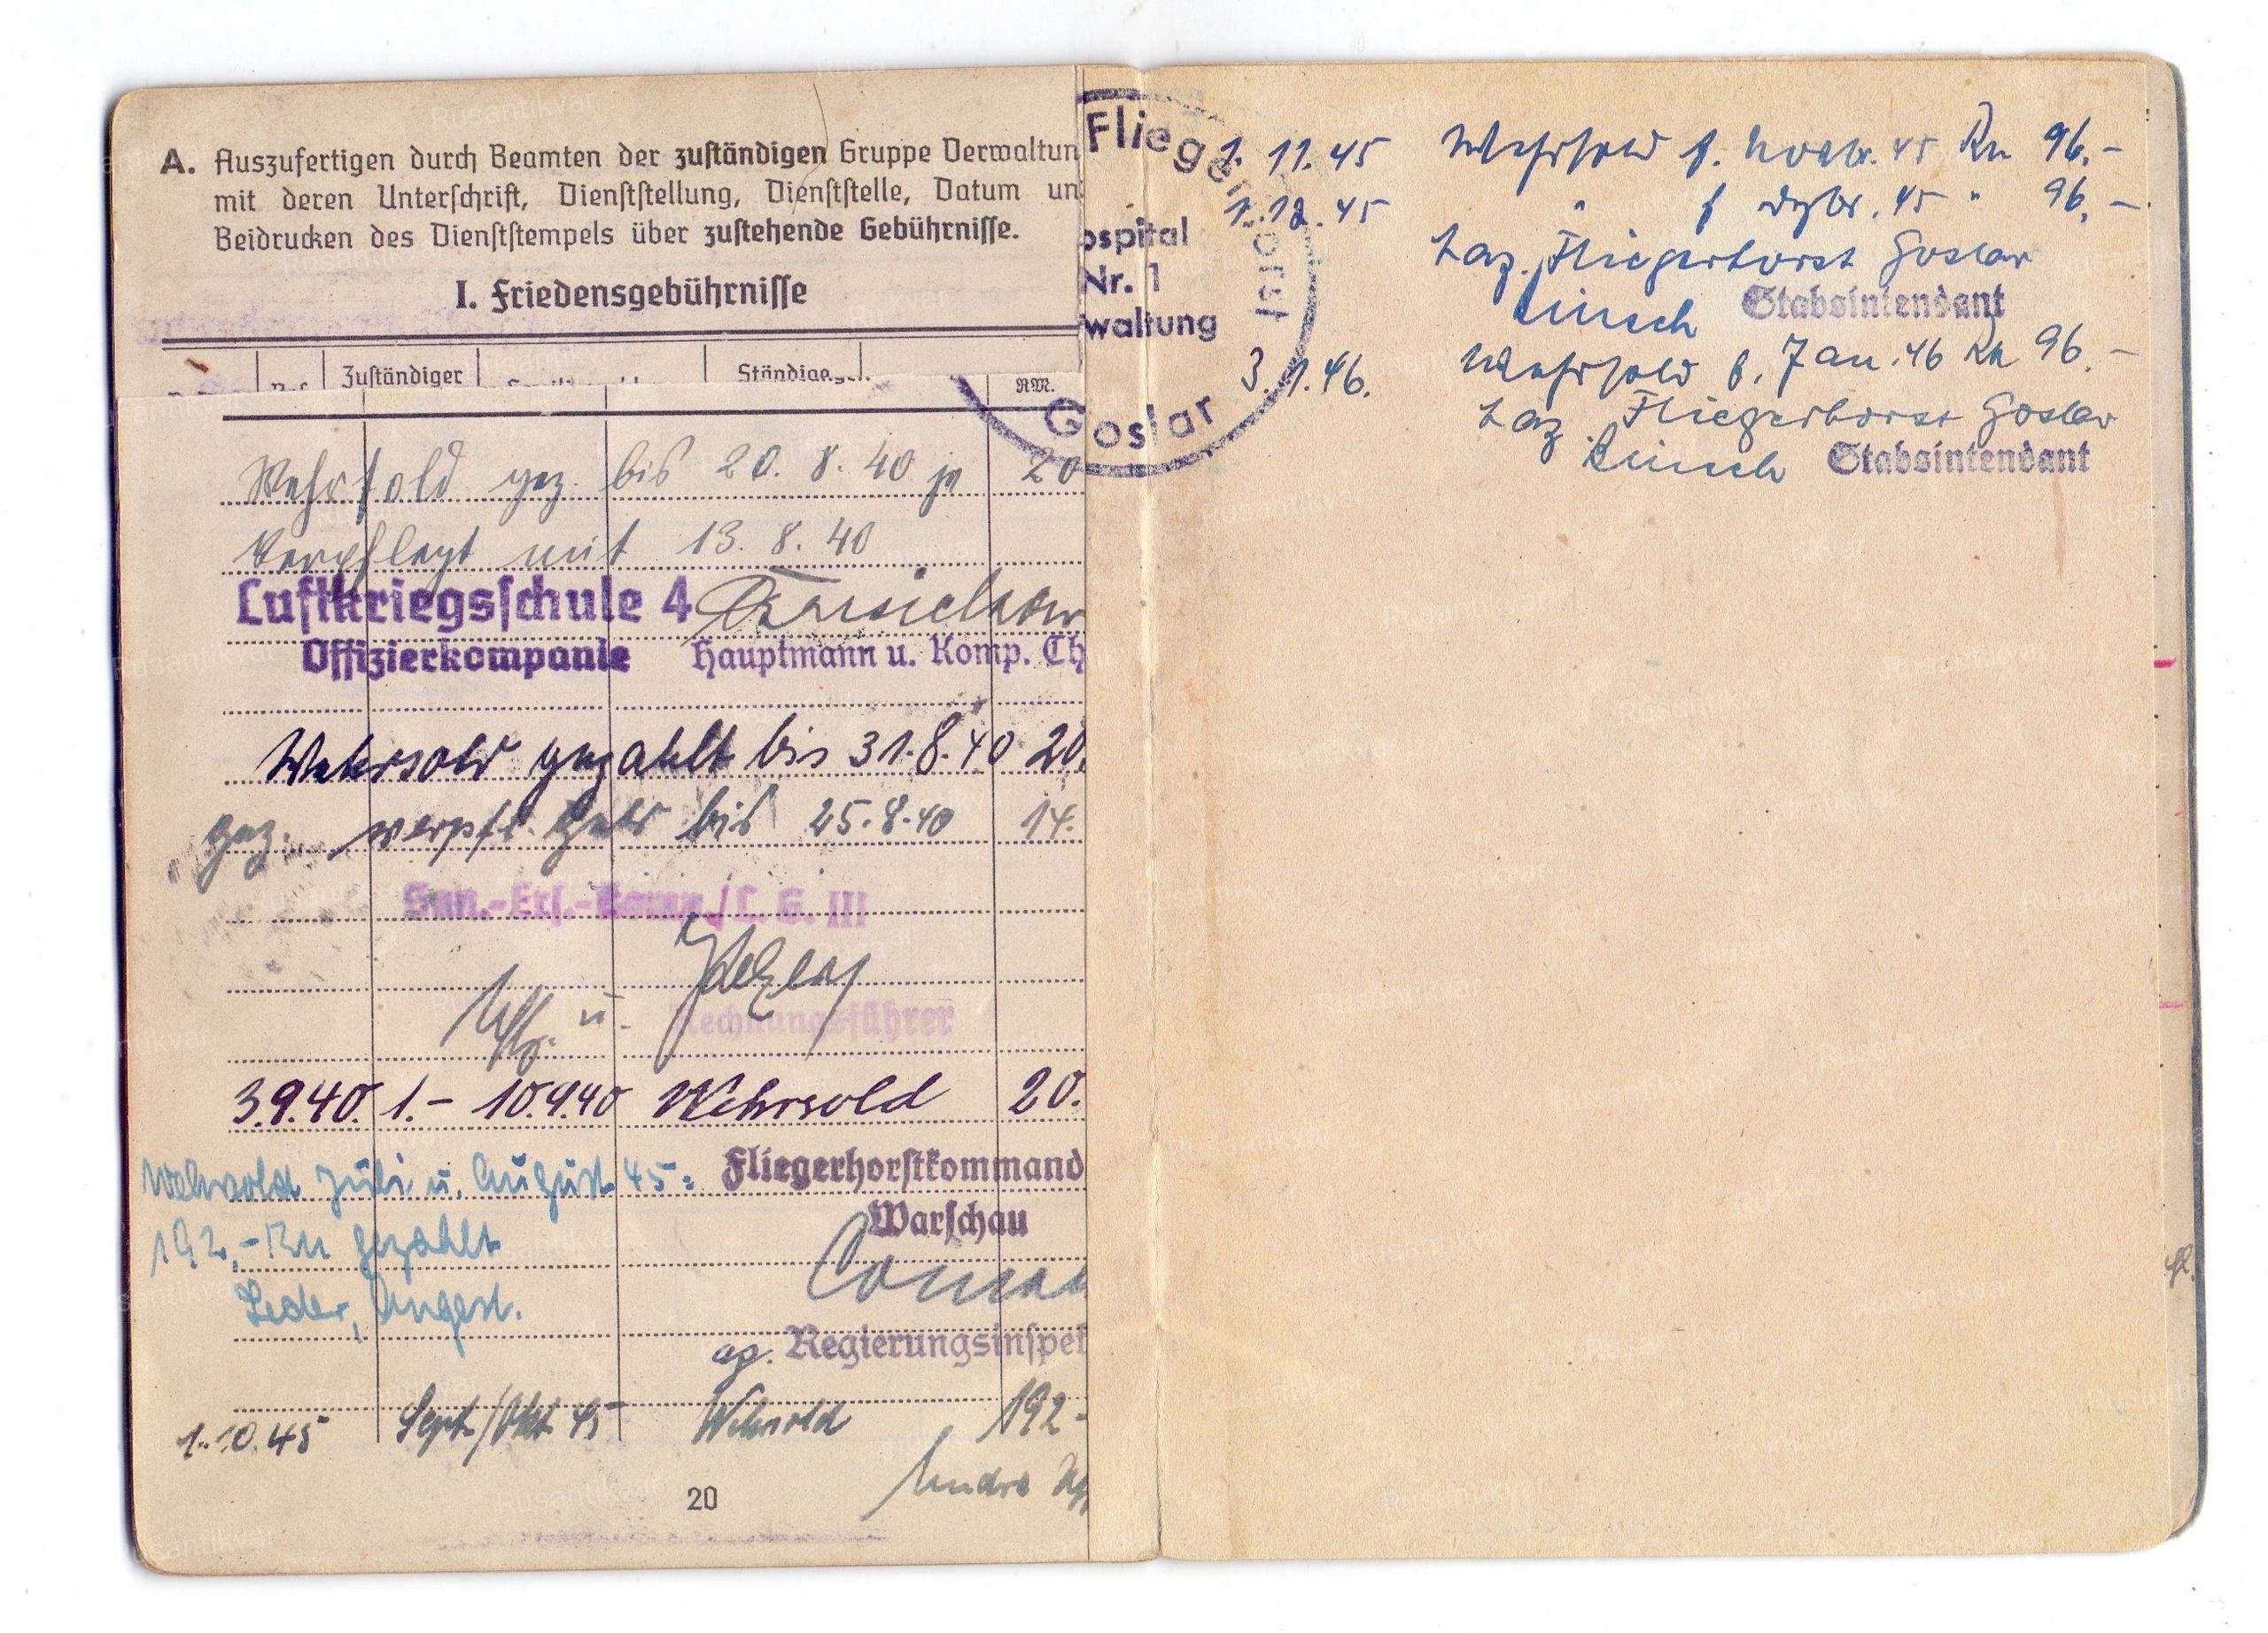 A. Auszufertigen durch Beamten der zuständigen Gruppe Verwaltun
mit deren Unterschrift, Dienststellung, Dienststelle, Datum un
Beidrucken des Dienststempels über zustehende Gebührnisse.
I. Friedensgebührnisse
Zuständiger
Ständige
RM.
Wehrsold gez. bis 20. 8. 40 je 20
Verpflegt mit 13. 8. 40
Luftkriegsschule 4
Offizierkompanie Hauptmann u. Komp. Ch
Wehrsold gezahlt bis 31.8.40 20.
gez. verpfl. Geld bis 25.8.40 14.
San.-Ers.-Komp./L. G. III
Uffz. u. Rechnungsführer
3.9.40. 1.- 10.9.40 Wehrsold 20.
Wehrsold Juli u. August 45: Fliegerhorstkommand
192,- RM gezahlt Warschau
Angest.
ap. Regierungsinspek
1.10.45 Sept/Okt 45 Wehrsold 192-
20
Fliegerhorst
ospital
Nr. 1
waltung
Goslar
1. 11. 45 Wehrsold f. Novbr. 45 RM 96.-
1. 12. 45 " f. Dzbr. 45 " 96.-
Laz. Fliegerhorst Goslar
Stabsintendant
3. 1. 46. Wehrsold f. Jan. 46 RM 96.-
Laz. Fliegerhorst Goslar
Stabsintendant